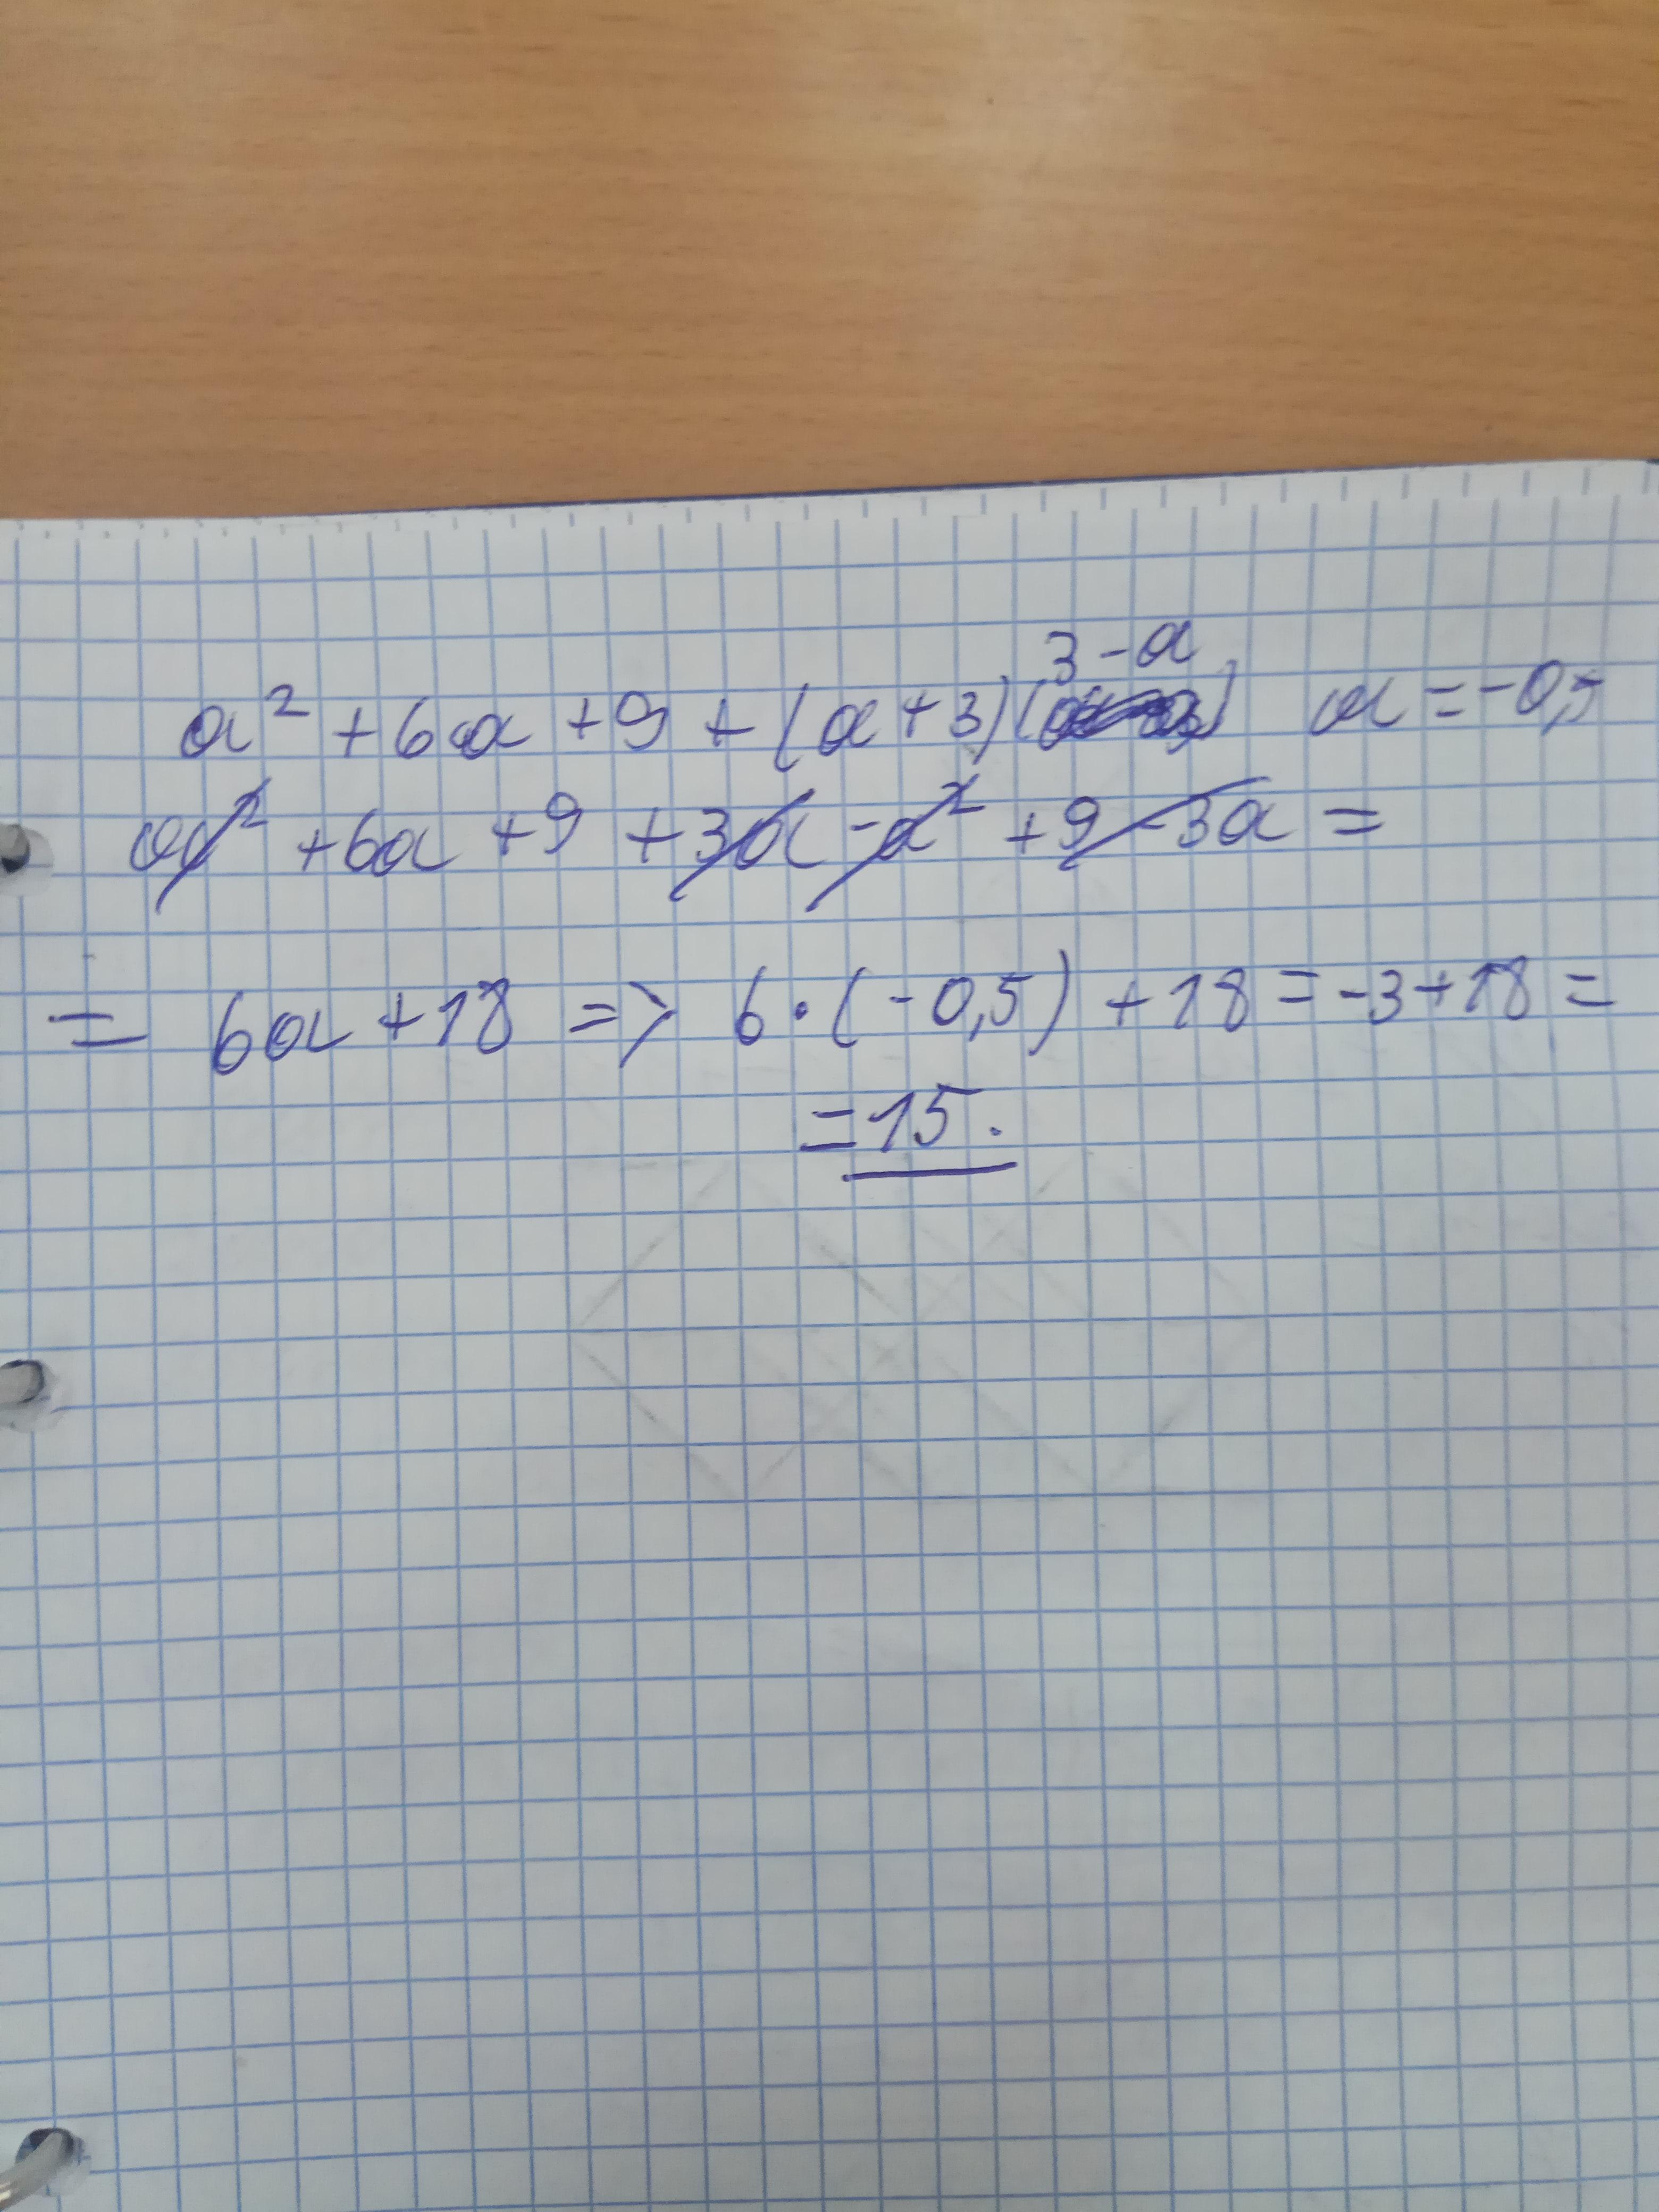 a² + 6a + 9 + (a + 3)(3 - a) a = -0,5
a² + 6a + 9 + 3a - a² + 9 - 3a =
= 6a + 18 => 6 · (-0,5) + 18 = -3 + 18 =
= 15.